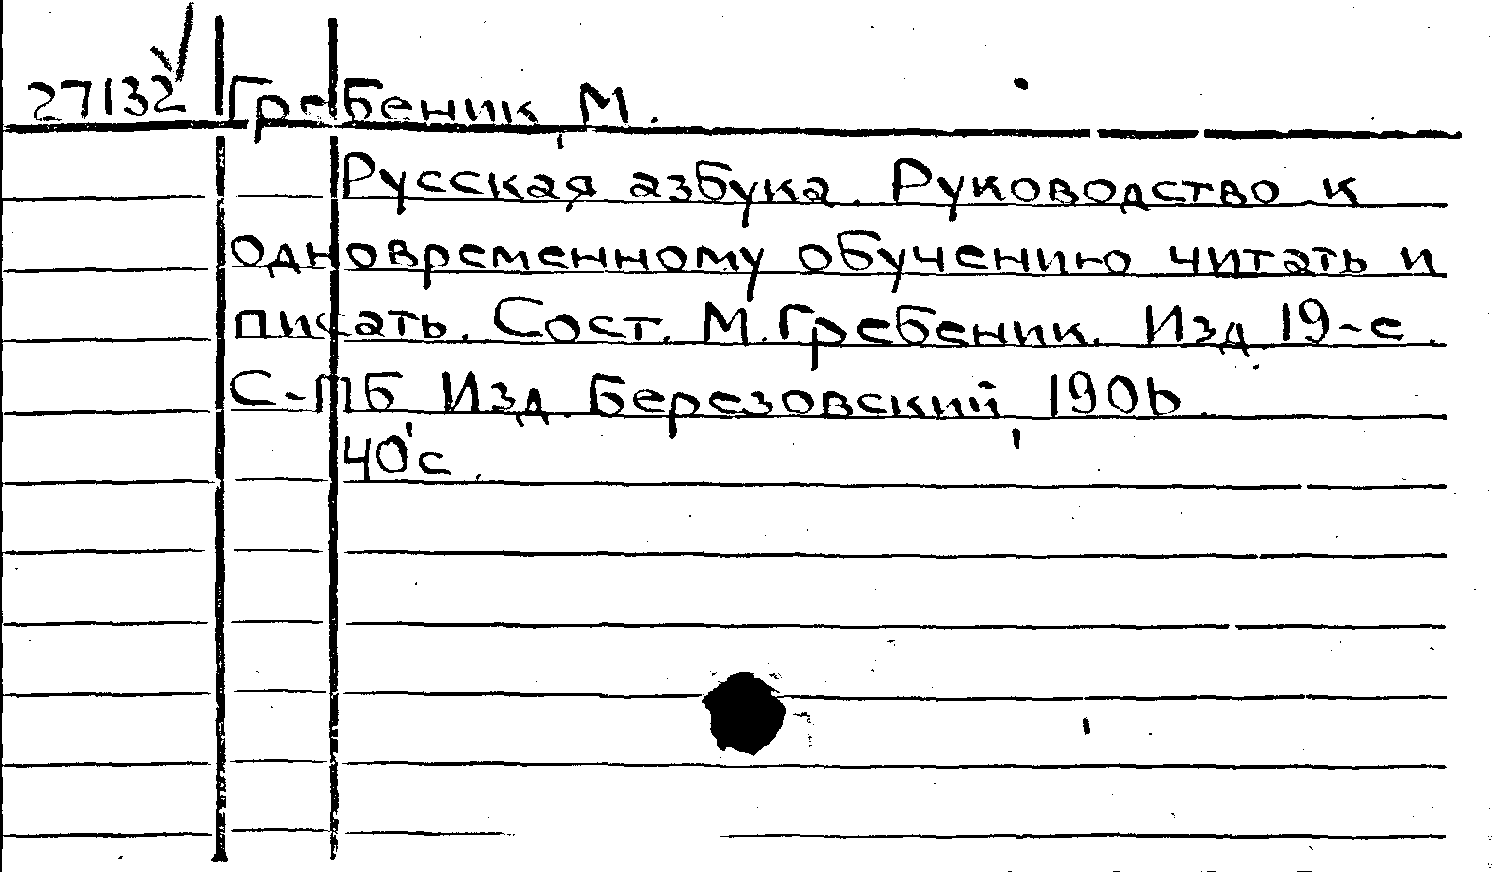 27132 Гребеник, М.
Русская азбука. Руководство к
одновременному обучению читать и
писать. Сост. М. Гребеник. Изд. 19-е.
С-ПБ Изд. Березовский, 1906.
40 с.